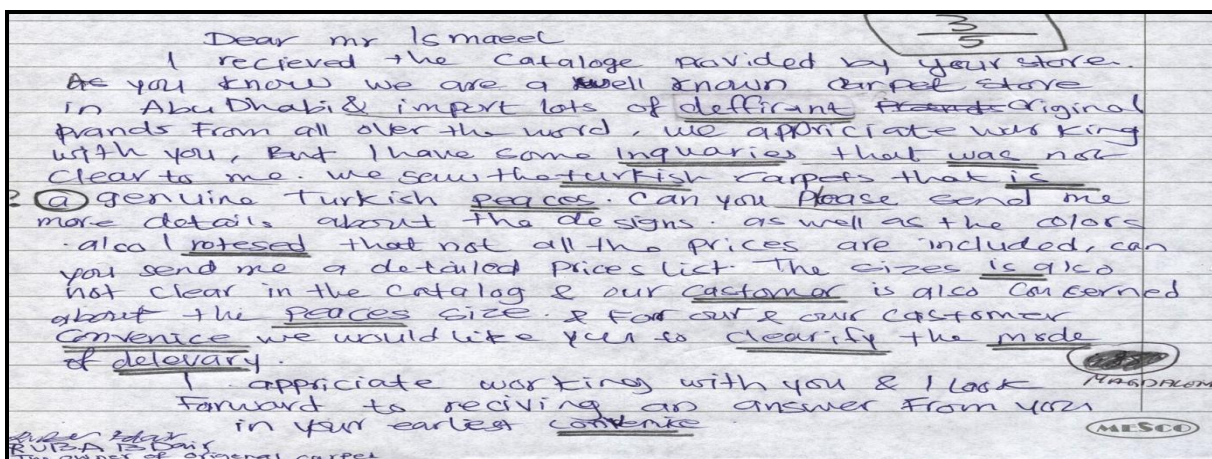 3
5
Dear mr Ismaeel
I recieved the Cataloge provided by your store.
As you know we are a well known carpet store
in Abu Dhabi & import lots of deffirant Original
prands from all over the word, we appriciate working
with you, But I have some Inquaries that was not
clear to me. we saw the turkish carpets that is
? a genuine Turkish peaces. Can you Please send me
more details about the designs. as well as the colors
.also I notesed that not all the prices are included, can
you send me a detailed prices list. The sizes is also
not clear in the catalog & our castomer is also concerned
about the peaces size. & For our & our castomer
convenice we would like you to clearify the mode
of delevary.
I appriciate working with you & I look
MAGDALEM
forward to reciving an answer from you
in your earlest convenice
MESCO
RUBA BDair
The owner of original carpet